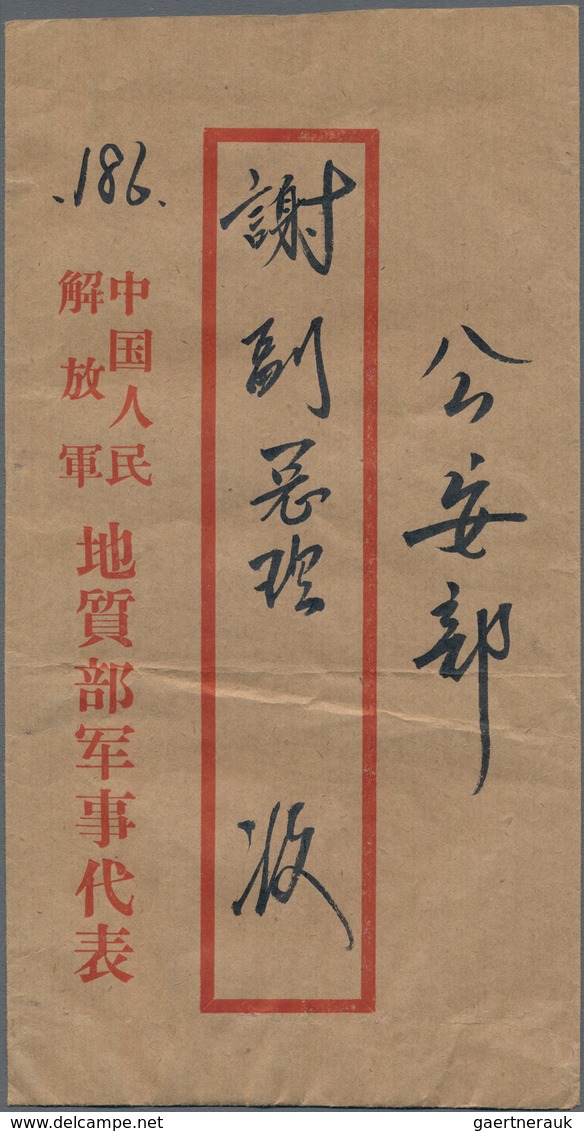 公安部
謝副总理
收
.186.
中国人民
解放軍
地質部军事代表
gaertnerauk